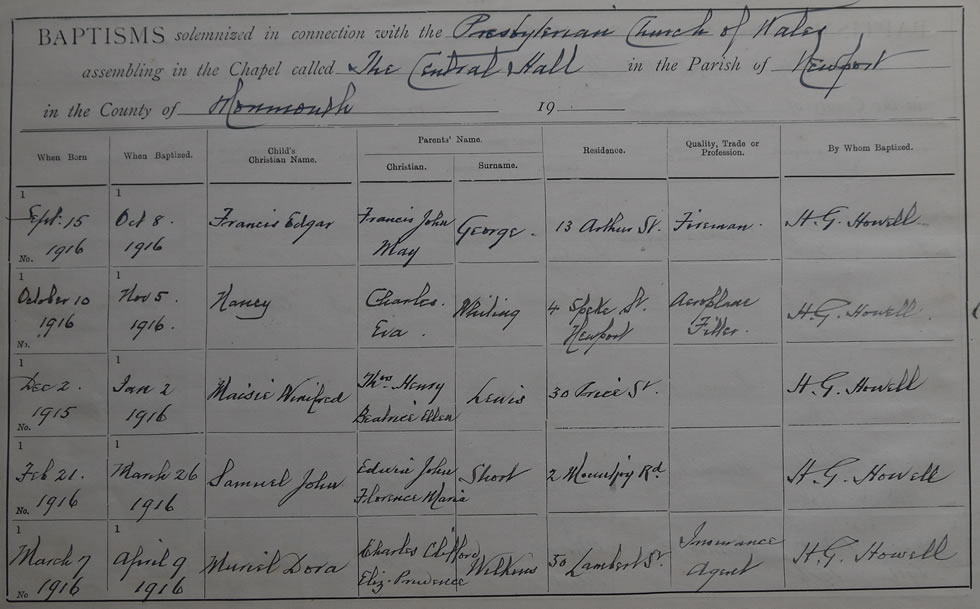 BAPTISMS solemnized in connection with the Presbyterian Church of Wales
assembling in the Chapel called The Central Hall in the Parish of Newport
in the County of Monmouth 19
When Born When Baptized. Child's Christian Name. Parents' Name. Christian. Surname. Residence. Quality, Trade or Profession. By Whom Baptized.
1 1
Sept. 15 Oct 8. Francis Edgar Francis John George. 13 Arthur St. Fireman. H. G. Howell.
No. 1916 1916 May
1 1
October 10 Nov 5. Nancy Charles. Whiting 4 Speke St. Aeroplane H. G. Howell.
No. 1916 1916. Eva. Newport Fitter.
1 1
Dec 2. Jan 2 Maisie Winifred Thos. Henry Lewis 30 Price St. H. G. Howell
No. 1915 1916 Beatrice Ellen
1 1
Feb 21. March 26 Samuel John Edwin John Short 2 Rd H. G. Howell
No. 1916 1916 Florence Maria
1 1
March 7 April 9 Muriel Dora Charles Clifford Wilkins 50 Lambert St. Insurance H. G. Howell
No 1916 1916 Eliz. Prudence Agent